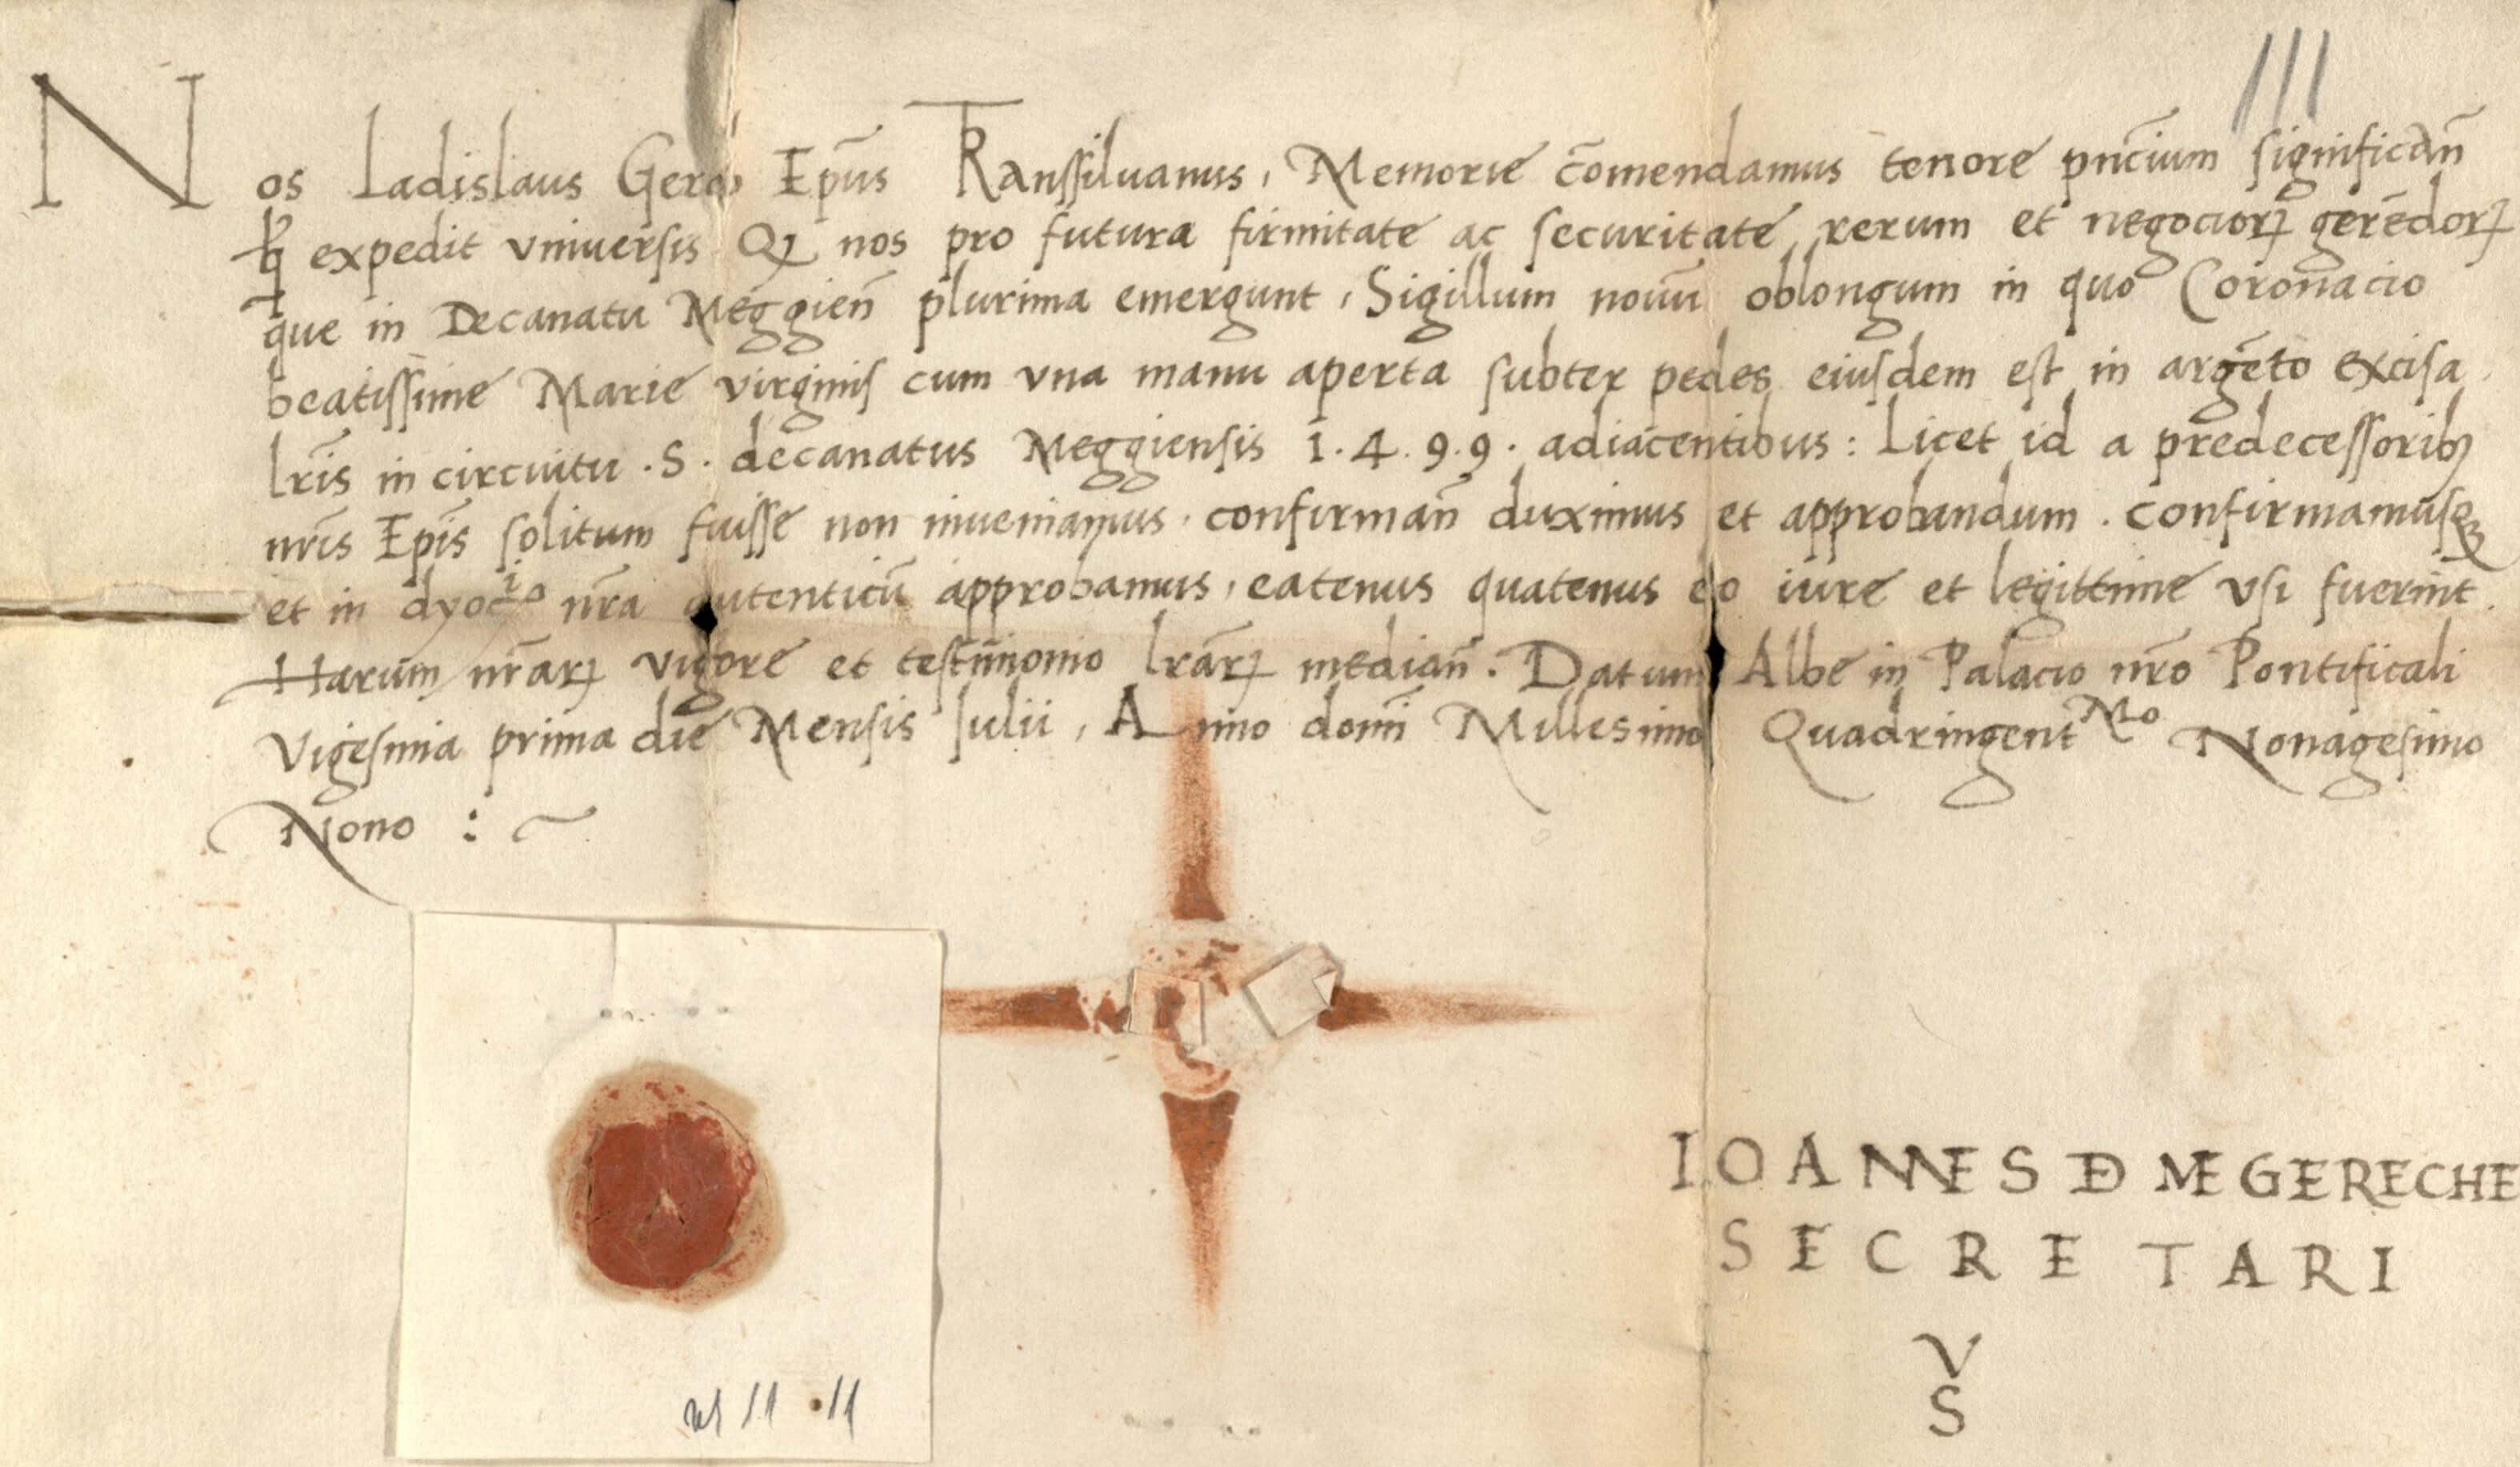 III
Nos Ladislaus Gereb Ep̄us TRansſiluanus, Memorie com̄endamus tenore pn̄cium significan̄
expedit vniuersis Qꝫ nos pro futura firmitate ac securitate rerum et negocioꝝ gerēdoꝝ
que in Decanatu Meggien̄ plurima emergunt, Sigillum nouū oblongum in quo Coronacio
beatisſime Marie virginis cum vna manu aperta subter pedes eiusdem est in argēto excisa
lrīs in circuitu .S. decanatus Meggiensis 1.4.9.9. adiacentibus: Licet id a predecesſoribꝫ
nrīs Ep̄is solitum fuisſe non inueniamus. confirman̄ duximus et approbandum. confirmamusqꝫ
et in dyoc̄io nr̄a autenticū approbamus, eatenus quatenus eo iure et legittime vsi fuerint.
Harum nr̄aꝝ vigore et testimonio lr̄aꝝ median̄. Datum Albe in Palacio nr̄o Pontificali
Vigesima prima die Mensis Iulii, Anno domī Millesimo QuadringentMo Nonagesimo
Nono : ~
IOANNES DE MEGERECHE
SECRETARI
V
S